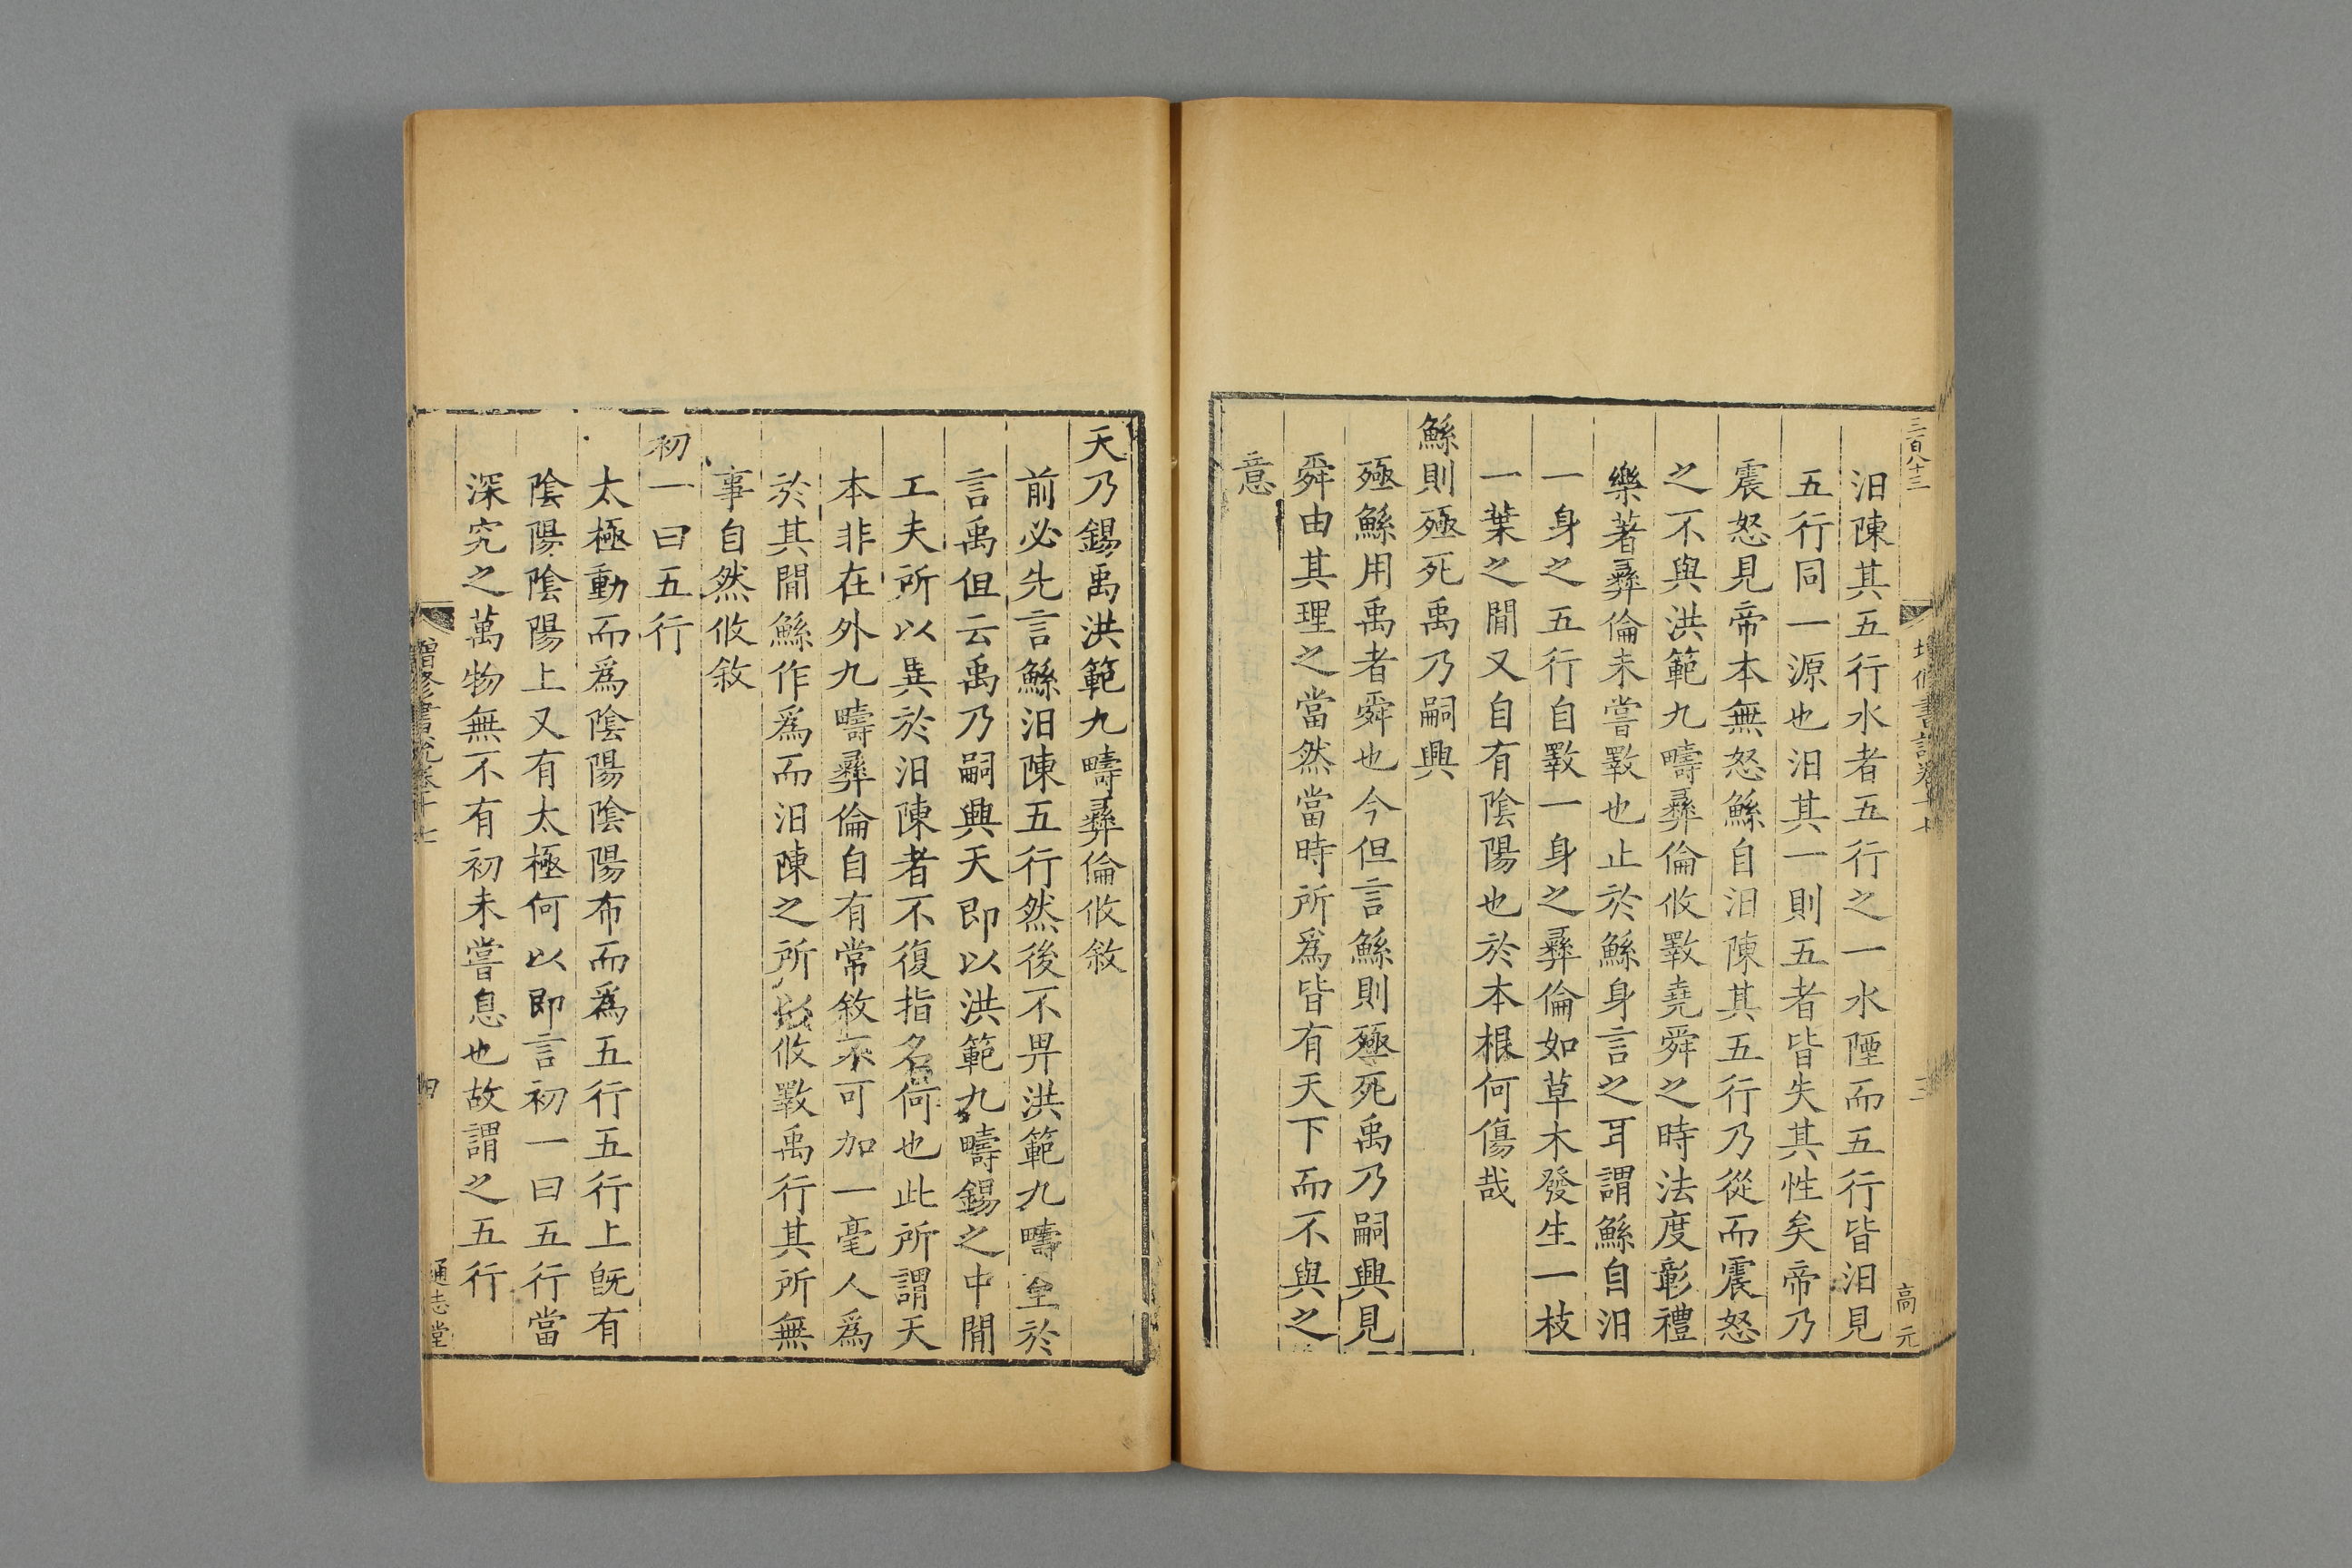 三百八十三
高元
汩陳其五行水者五行之一水陻而五行皆汩見
五行同一源也汩其一則五者皆失其性矣帝乃
震怒見帝本無怒鯀自汩陳其五行乃從而震怒
之不與洪範九疇彝倫攸斁堯舜之時法度彰禮
樂著彝倫未嘗斁也止於鯀身言之耳謂鯀自汩
一身之五行自斁一身之彝倫如草木發生一枝
一葉之間又自有陰陽也於本根何傷哉
鯀則殛死禹乃嗣興
殛鯀用禹者舜也今但言鯀則殛死禹乃嗣興見
舜由其理之當然當時所爲皆有天下而不與之
意
天乃錫禹洪範九疇彝倫攸敘
前必先言鯀汩陳五行然後不畀洪範九疇至於
言禹但云禹乃嗣興天即以洪範九疇錫之中間
工夫所以異於汩陳者不復指名何也此所謂天
本非在外九疇彝倫自有常敘不可加一毫人爲
於其間鯀作爲而汩陳之所以攸斁禹行其所無
事自然攸敘
初一曰五行
太極動而爲陰陽陰陽布而爲五行五行上旣有
陰陽陰陽上又有太極何以即言初一曰五行當
深究之萬物無不有初未嘗息也故謂之五行
增修書說卷十七
四
通志堂